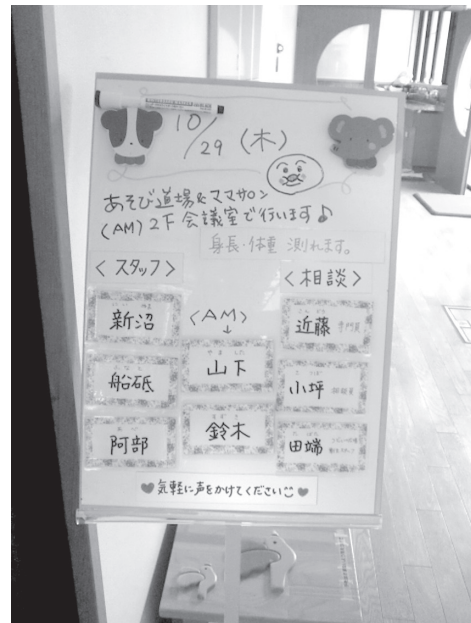 10/29 (木)
あそび道場&ママサロン
(AM) 2F 会議室で行います♪
身長・体重 測れます。
〈スタッフ〉
新沼
船砥
阿部
〈AM〉
↓
山下
鈴木
〈相談〉
近藤
小坪
田端
♥気軽に声をかけてください♥